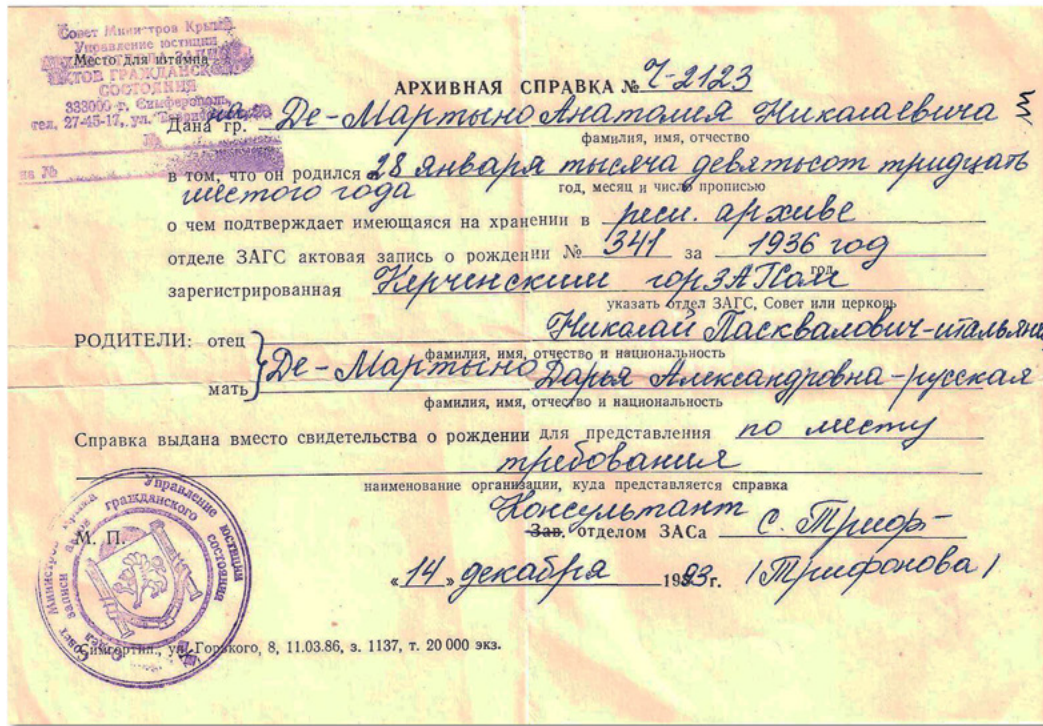 Совет Министров Крыма
Управление юстиции
Место для штампа
АКТОВ ГРАЖДАНСКОГО
СОСТОЯНИЯ
333000 г. Симферополь,
тел. 27-45-17, ул.
№
на №
АРХИВНАЯ СПРАВКА № Ч-2123
Дана гр. на Де-Мартыно Анатолия Николаевича
фамилия, имя, отчество
в том, что он родился 28 января тысяча девятьсот тридцать
шестого года
год, месяц и число прописью
о чем подтверждает имеющаяся на хранении в респ. архиве
отделе ЗАГС актовая запись о рождении № 341 за 1936 год
год
зарегистрированная Керченским горЗАГСом
указать отдел ЗАГС, Совет или церковь
РОДИТЕЛИ: отец Николай Пасквалович-итальянец
фамилия, имя, отчество и национальность
Де-Мартыно
мать Дарья Александровна-русская
фамилия, имя, отчество и национальность
Справка выдана вместо свидетельства о рождении для представления по месту
требования
наименование организации, куда представляется справка
Консультант
Зав. отделом ЗАСа С. Трифо-
М. П.
«14» декабря 1993г. /Трифонова/
Совет Министров Крыма Управление юстиции
Отдел записи актов гражданского состояния
Симгортип., ул. Горького, 8, 11.03.86, з. 1137, т. 20 000 экз.